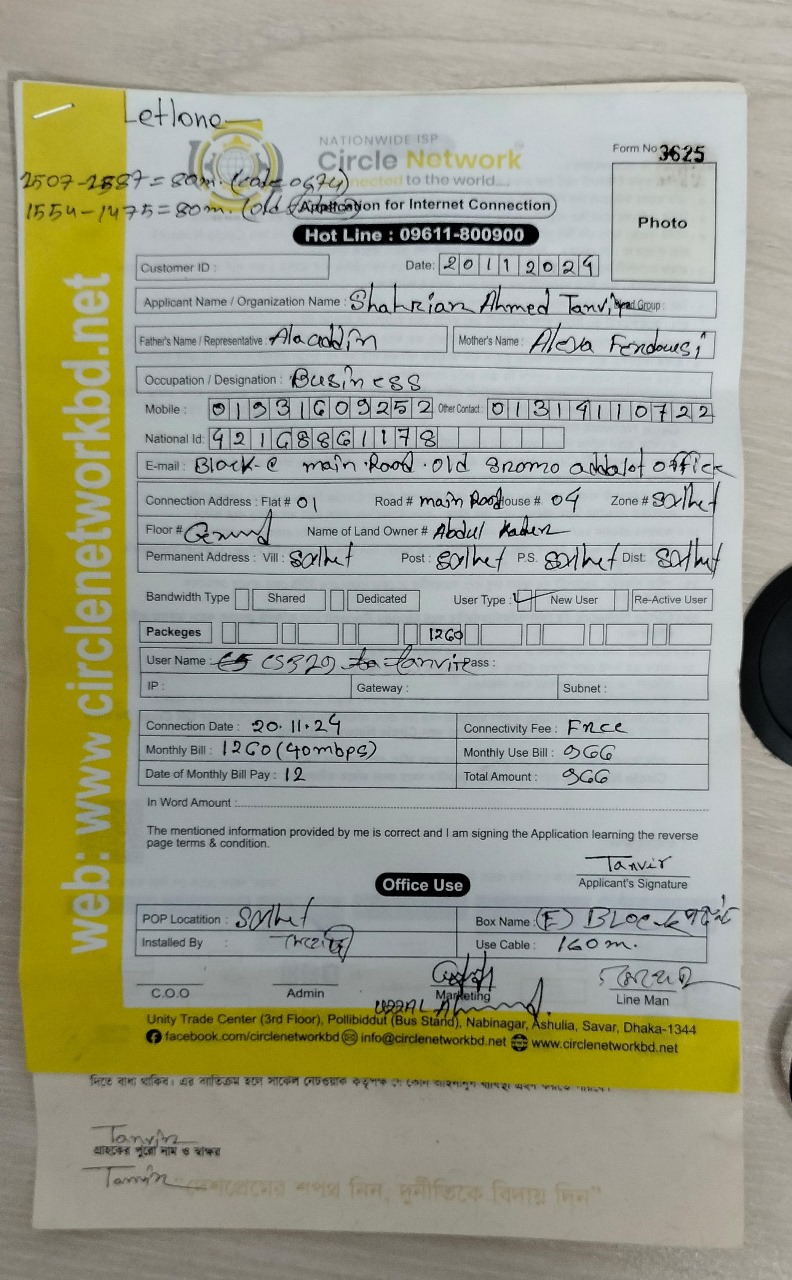 Letlone
NATIONWIDE ISP
Circle Network
Connected to the world....
Form No 3625
2507-2587=80m. (code 0674)
1554-1475=80m. (old
Application for Internet Connection
Photo
Hot Line : 09611-800900
Customer ID :
Date: 20112024
Applicant Name / Organization Name : Shahrian Ahmed Tanvir Blood Group :
Father's Name / Representative : Alacddin Mother's Name : Alexa Fendousi
Occupation / Designation : Business
Mobile : 01931609252 Other Contact : 01319110722
National Id: 42168861178
E-mail : Block-e main Rood old gromo addalot office
Connection Address : Flat # 01 Road # main Rood House # 04 Zone # Sylhet
Floor # Name of Land Owner # Abdul Kader
Permanent Address : Vill : Sylhet Post : Sylhet P.S. Sylhet Dist: Sylhet
Bandwidth Type Shared Dedicated User Type : New User Re-Active User
Packeges 1260
User Name : CS929 tanvir Pass :
IP : Gateway : Subnet :
Connection Date : 20.11.24 Connectivity Fee : Free
Monthly Bill : 1260 (40mbps) Monthly Use Bill : 966
Date of Monthly Bill Pay : 12 Total Amount : 966
In Word Amount :
The mentioned information provided by me is correct and I am signing the Application learning the reverse
page terms & condition.
Tanvir
Applicant's Signature
Office Use
POP Locatition : Sylhet Box Name : (E) BLOC-k
Installed By : Use Cable : 160m.
C.O.O Admin Marketing Line Man
Unity Trade Center (3rd Floor), Pollibiddut (Bus Stand), Nabinagar, Ashulia, Savar, Dhaka-1344
facebook.com/circlenetworkbd info@circlenetworkbd.net www.circlenetworkbd.net
web: www circlenetworkbd.net
Tanvir
গ্রাহকের পুরো নাম ও স্বাক্ষর
Tanvir
"দেশপ্রেমের শপথ নিন, দুর্নীতিকে বিদায় দিন"